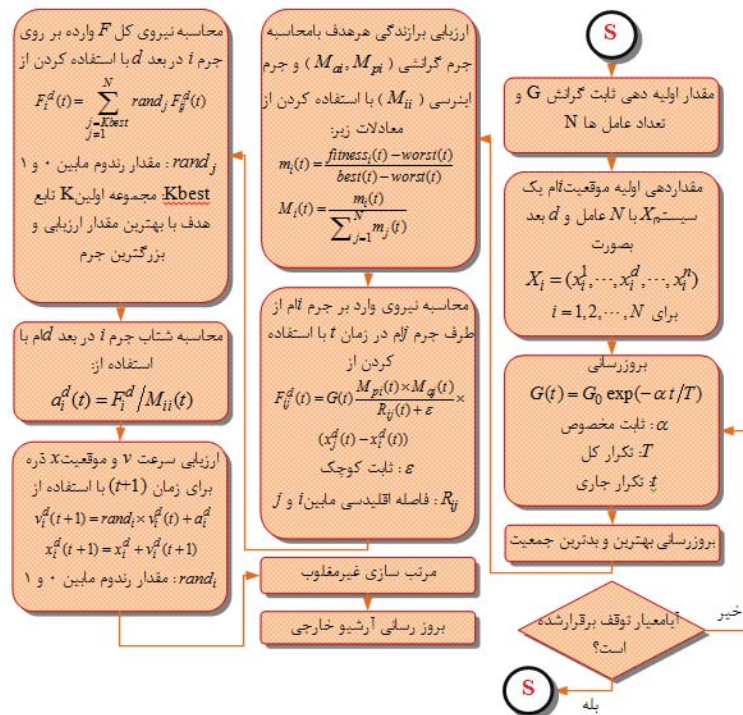 S
مقدار اولیه دهی ثابت گرانش G و
تعداد عامل ها N
مقداردهی اولیه موقعیت iام یک
سیستم X با N عامل و d بعد
بصورت
X_i = (x_i^1, ⋯, x_i^d, ⋯, x_i^n)
برای i = 1, 2, ⋯, N
بروزرسانی
G(t) = G_0 exp(−α t/T)
α : ثابت مخصوص
T: تکرار کل
t: تکرار جاری
بروزرسانی بهترین و بدترین جمعیت
ارزیابی برازندگی هرهدف بامحاسبه
جرم گرانشی ( M_ai, M_pi ) و جرم
اینرسی ( M_ii ) با استفاده کردن از
معادلات زیر:
m_i(t) = (fitness_i(t) − worst(t)) / (best(t) − worst(t))
M_i(t) = m_i(t) / ∑_{j=1}^{N} m_j(t)
محاسبه نیروی وارد بر جرم iام از
طرف جرم jام در زمان t با استفاده
کردن از
F_ij^d(t) = G(t) (M_pi(t) × M_aj(t)) / (R_ij(t) + ε) ×
(x_j^d(t) − x_i^d(t))
ε : ثابت کوچک
R_ij : فاصله اقلیدسی مابین i و j
محاسبه نیروی کل F وارده بر روی
جرم i در بعد d با استفاده کردن از
F_i^d(t) = ∑_{j=Kbest, j≠1}^{N} rand_j F_ij^d(t)
rand_j : مقدار رندوم مابین ۰ و ۱
Kbest: مجموعه اولین K تابع
هدف با بهترین مقدار ارزیابی و
بزرگترین جرم
محاسبه شتاب جرم i در بعد dام با
استفاده از:
a_i^d(t) = F_i^d / M_ii(t)
ارزیابی سرعت v و موقعیت x ذره
برای زمان (t+1) با استفاده از
v_i^d(t+1) = rand_i × v_i^d(t) + a_i^d
x_i^d(t+1) = x_i^d + v_i^d(t+1)
rand_i : مقدار رندوم مابین ۰ و ۱
مرتب سازی غیرمغلوب
بروز رسانی آرشیو خارجی
آیامعیار توقف برقرارشده
است؟
خیر
بله
S